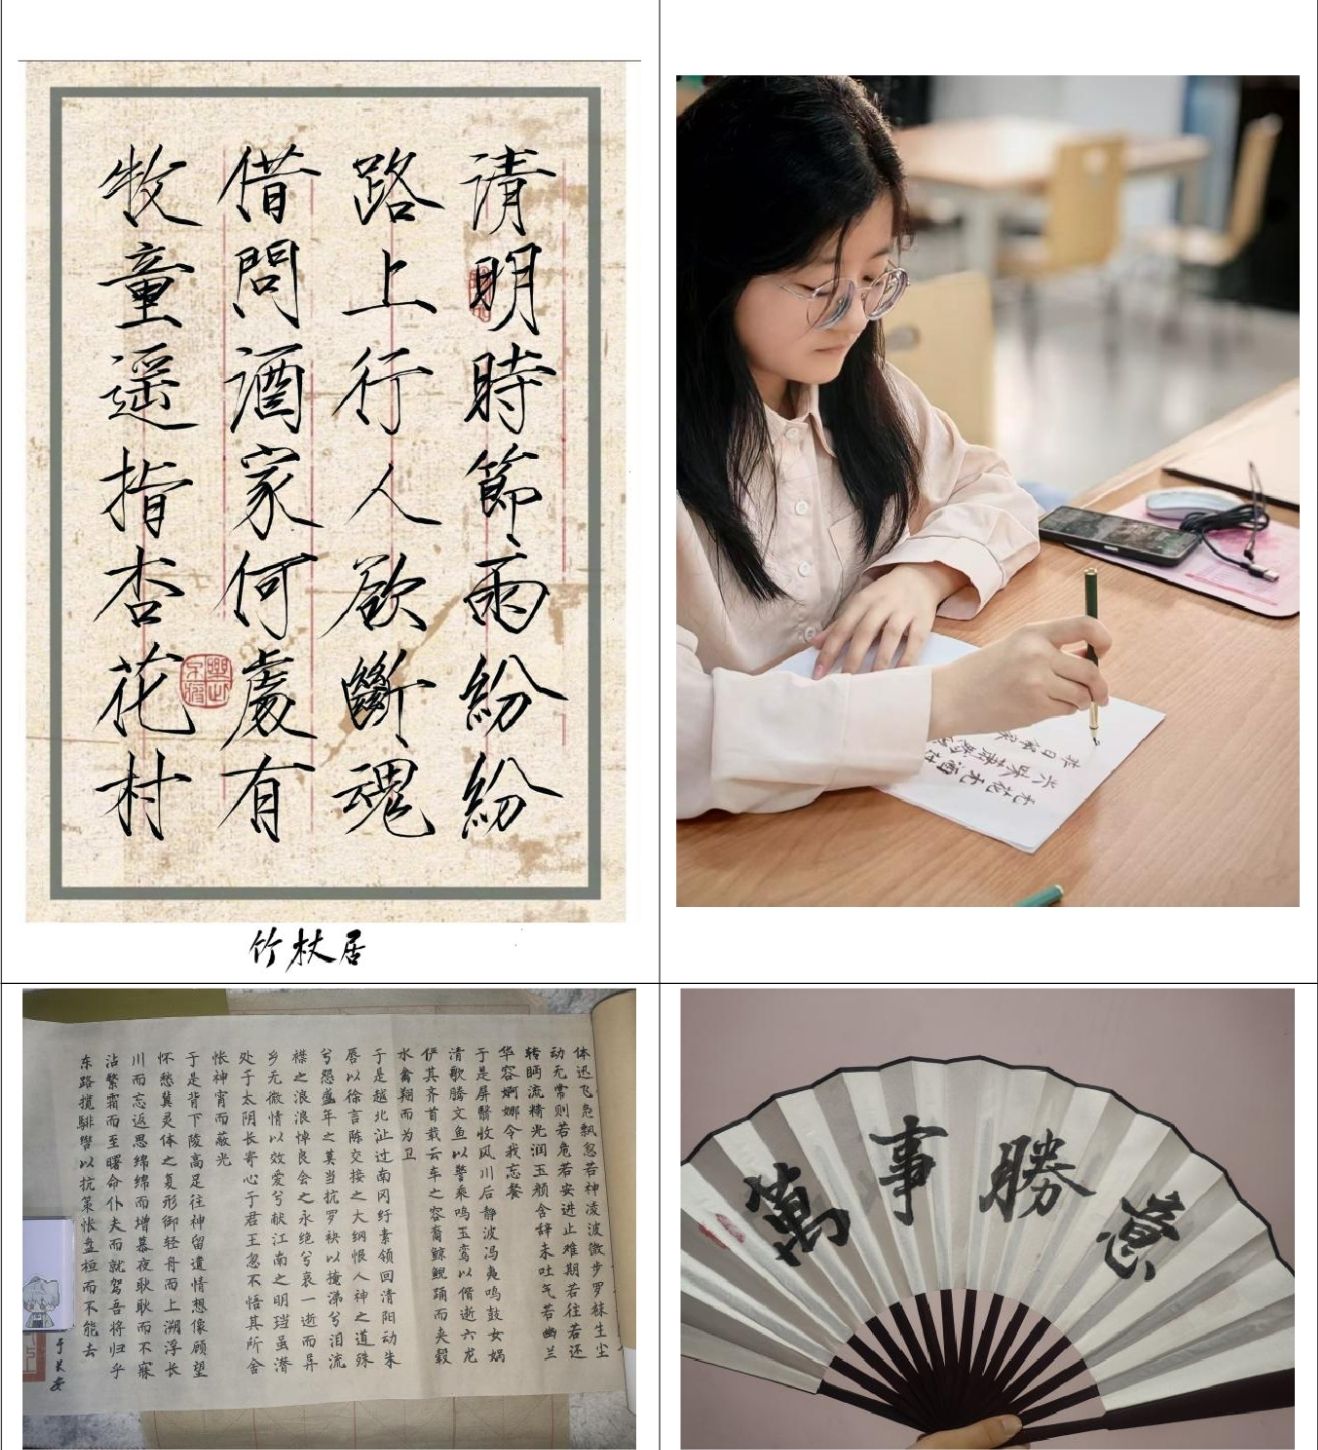 清明時節雨紛紛
路上行人欲斷魂
借問酒家何處有
牧童遥指杏花村
竹杖居
无花无酒过
兴味萧然
昨日邻家
体迅飞凫飘忽若神凌波微步罗袜生尘
动无常则若危若安进止难期若往若还
转眄流精光润玉颜含辞未吐气若幽兰
华容婀娜令我忘餐
于是屏翳收风川后静波冯夷鸣鼓女娲
清歌腾文鱼以警乘鸣玉鸾以偕逝六龙
俨其齐首载云车之容裔鲸鲵踊而夹毂
水禽翔而为卫
于是越北沚过南冈纡素领回清阳动朱
唇以徐言陈交接之大纲恨人神之道殊
兮怨盛年之莫当抗罗袂以掩涕兮泪流
襟之浪浪悼良会之永绝兮哀一逝而异
乡无微情以效爱兮献江南之明珰虽潜
处于太阴长寄心于君王忽不悟其所舍
怅神宵而蔽光
于是背下陵高足往神留遗情想像顾望
怀愁冀灵体之复形御轻舟而上溯浮长
川而忘返思绵绵而增慕夜耿耿而不寐
沾繁霜而至曙命仆夫而就驾吾将归乎
东路揽騑辔以抗策怅盘桓而不能去
于长安
萬事勝意